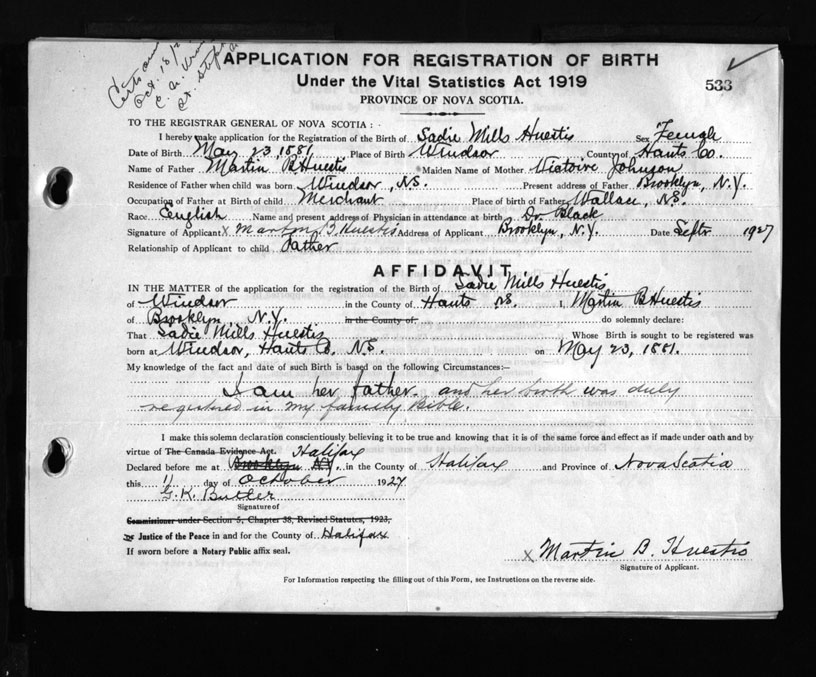 Oct. 18/2
APPLICATION FOR REGISTRATION OF BIRTH
Under the Vital Statistics Act 1919
533
PROVINCE OF NOVA SCOTIA.
TO THE REGISTRAR GENERAL OF NOVA SCOTIA:
I hereby make application for the Registration of the Birth of Sadie Mills Huestis Sex Female
Date of Birth May 23, 1881 Place of Birth Windsor County of Hants Co.
Name of Father Martin B Huestis Maiden Name of Mother Victoire Johnson
Residence of Father when child was born Windsor, NS. Present address of Father Brooklyn, N.Y.
Occupation of Father at Birth of child Merchant Place of birth of Father Wallace, N.S.
Race English Name and present address of Physician in attendance at birth Dr. Black
Signature of Applicant X Martin B. Huestis Address of Applicant Brooklyn, N.Y. Date Septr 1927
Relationship of Applicant to child Father
AFFIDAVIT
IN THE MATTER of the application for the registration of the Birth of Sadie Mills Huestis
of Windsor in the County of Hants NS. I, Martin B Huestis
of Brooklyn N.Y. in the County of do solemnly declare:
That Sadie Mills Huestis Whose Birth is sought to be registered was
born at Windsor, Hants Co. N.S. on May 23, 1881.
My knowledge of the fact and date of such Birth is based on the following Circumstances:—
I am her father. and her birth was duly
registred in my family Bible.
I make this solemn declaration conscientiously believing it to be true and knowing that it is of the same force and effect as if made under oath and by
virtue of The Canada Evidence Act. Halifax
Declared before me at Brooklyn NY in the County of Halifax and Province of Nova Scotia
this 11 day of October 1927
G. K. Butler
Signature of
Commissioner under Section 5, Chapter 38, Revised Statutes, 1923,
or Justice of the Peace in and for the County of Halifax
If sworn before a Notary Public affix seal.
X Martin B. Huestis
Signature of Applicant.
For Information respecting the filling out of this Form, see Instructions on the reverse side.